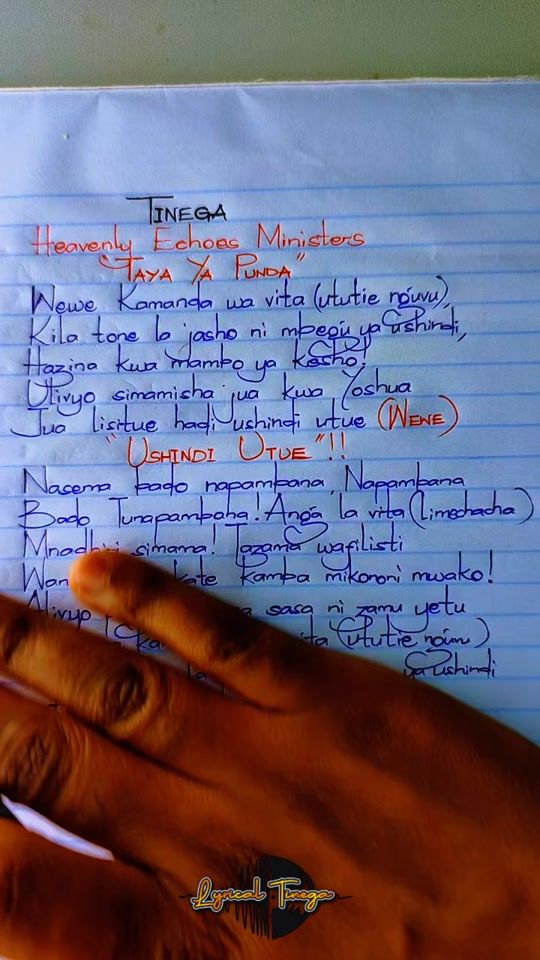 TINEGA
Heavenly Echoes Ministers
"TAYA YA PUNDA"
Wewe Kamanda wa vita (ututie ng'uvu),
Kila tone la jasho ni mbegu ya ushindi,
Hazina kwa mambo ya kesho!
Ulivyo simamisha jua kwa Yoshua
Jua lisitue hadi ushindi utue (WEWE)
"USHINDI UTUE"!!
Nasema bado napambana, Napambana
Bado Tunapambana! Anga la vita (Limechacha)
simama! Tazama wafilisti
Kamba mikononi mwako!
sasa ni zamu yetu
(ututie nguvu)
ya ushindi
Lyrical Tinega